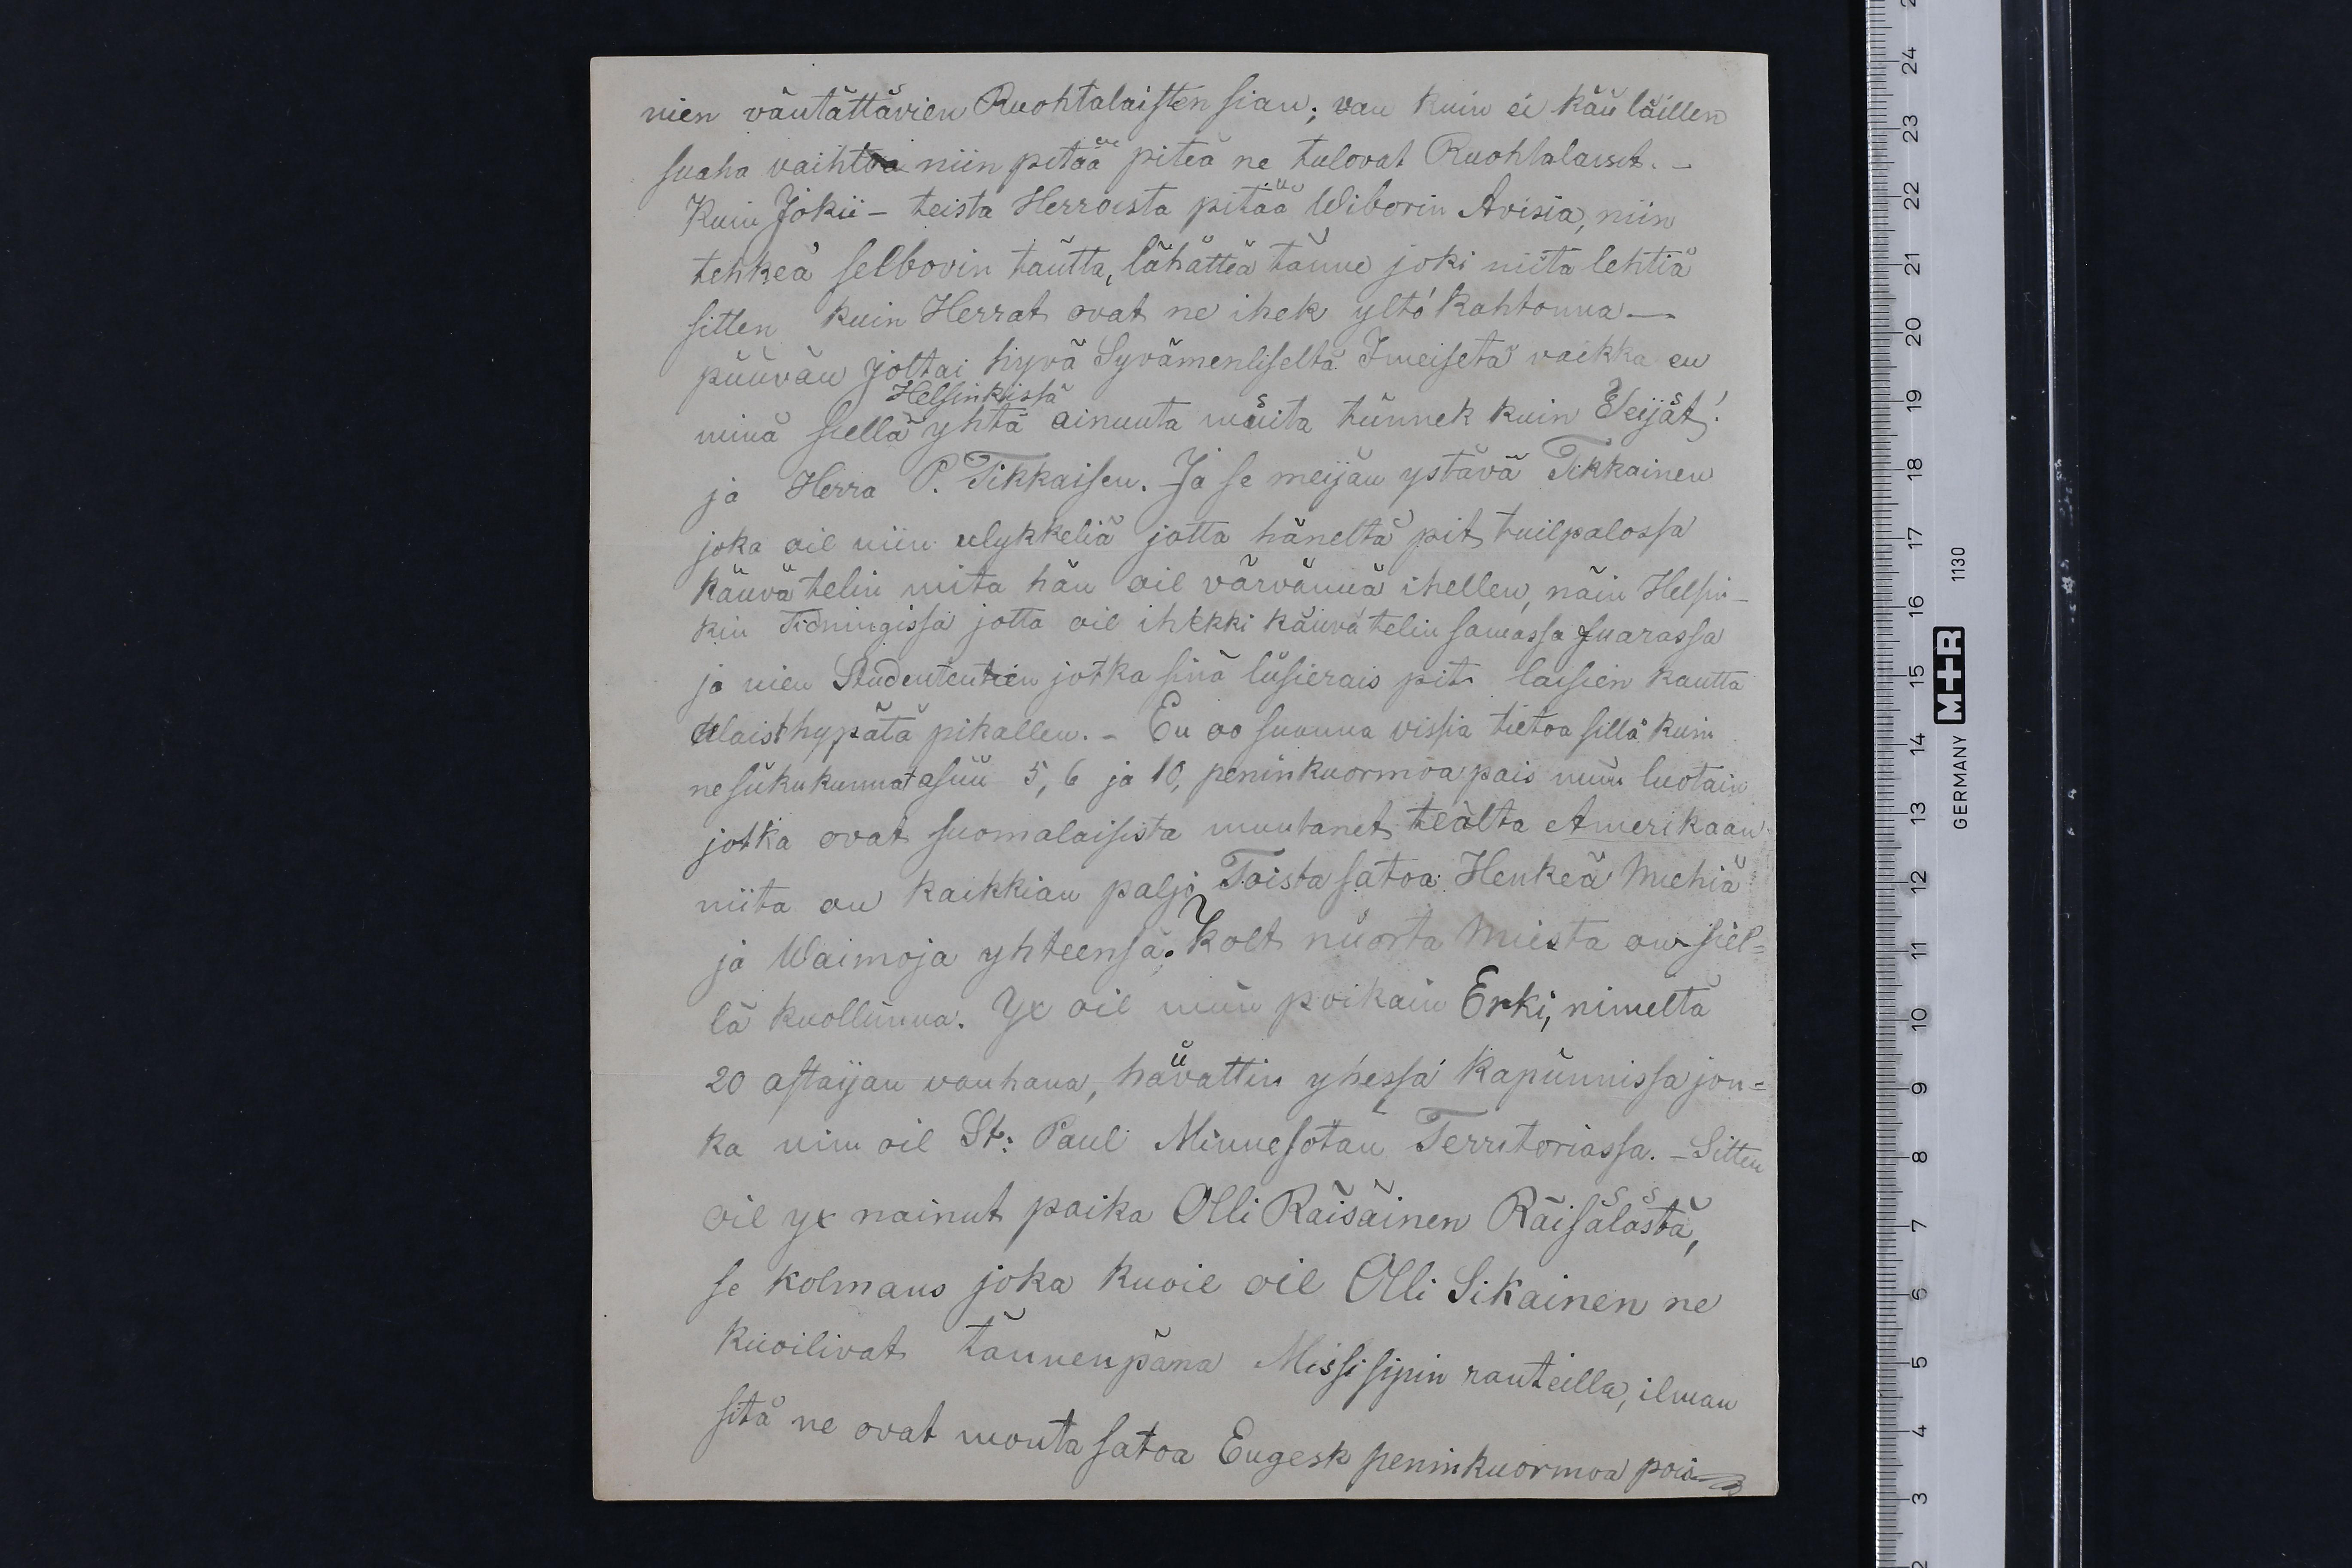 nien väntättävien Ruohtalaisten sian; van kuin ei käu läillen
suaha vaihtoa niin pitää piteä ne tulovat Ruohtalaiset. -
Kuin Jokii - teista Herroista pitää Wiborin Avisia, niin
tehkeä selbovin täutta, lähätteä tänne joki niita lehtiä
sitten kuin Herrat ovat ne ihek yltä kahtonna —
püüvän joltai hyvä Syvämenliseltä Imeisetä vaikka en
Helsinkissä
minä siellä yhtä ainuuta muita tünnek kuin Teijät!
ja Herra P. Tikkaisen. Ja se meijän ystävä Tikkainen
joka oil niin ulykkeliä jotta häneltä pit tuilpalossa
käuvä telin mita hän oil värvännä ihellen, näin Helsin-
kin Tidningissa jotta oil ihekki käuvä telin samassa suarassa
ja nien Studententien jotka sinä lüsierais pit laisien kautta
ulaist hypätä pikallen. - En oo suanna vissia tietoa sillä kuin
ne sukukunnat asuu 5, 6 ja 10, peninkuormoa pois muu luotain
jotka ovat suomalaisista muutanet teälta Amerikaan
niita on kaikkian paljo Toista satoa Henkeä Miehiä
ja Waimoja yhteensä. Kolt nüorta Miesta on siel=
lä kuollunna. Yx oil muu poikain Erki, nimeltä
20 astaijan vanhana, häüvattin yhessä kapünnissa jon=
ka nim oil St: Paul Minnesotan Territoriassa. - Sitten
oil yx nainut poika Olli Räisäinen Räisälästä,
se kolmans joka kuoil oil Olli Sikainen ne
kuoilivat tännenpäna Missisipin ranteilla, ilman
sitä ne ovat monta satoa Engesk peninkuormoa pois
24
23
22
21
20
19
18
17
16
15
14
13
12
11
10
9
8
7
6
5
4
3
2
GERMANY M+R 1130